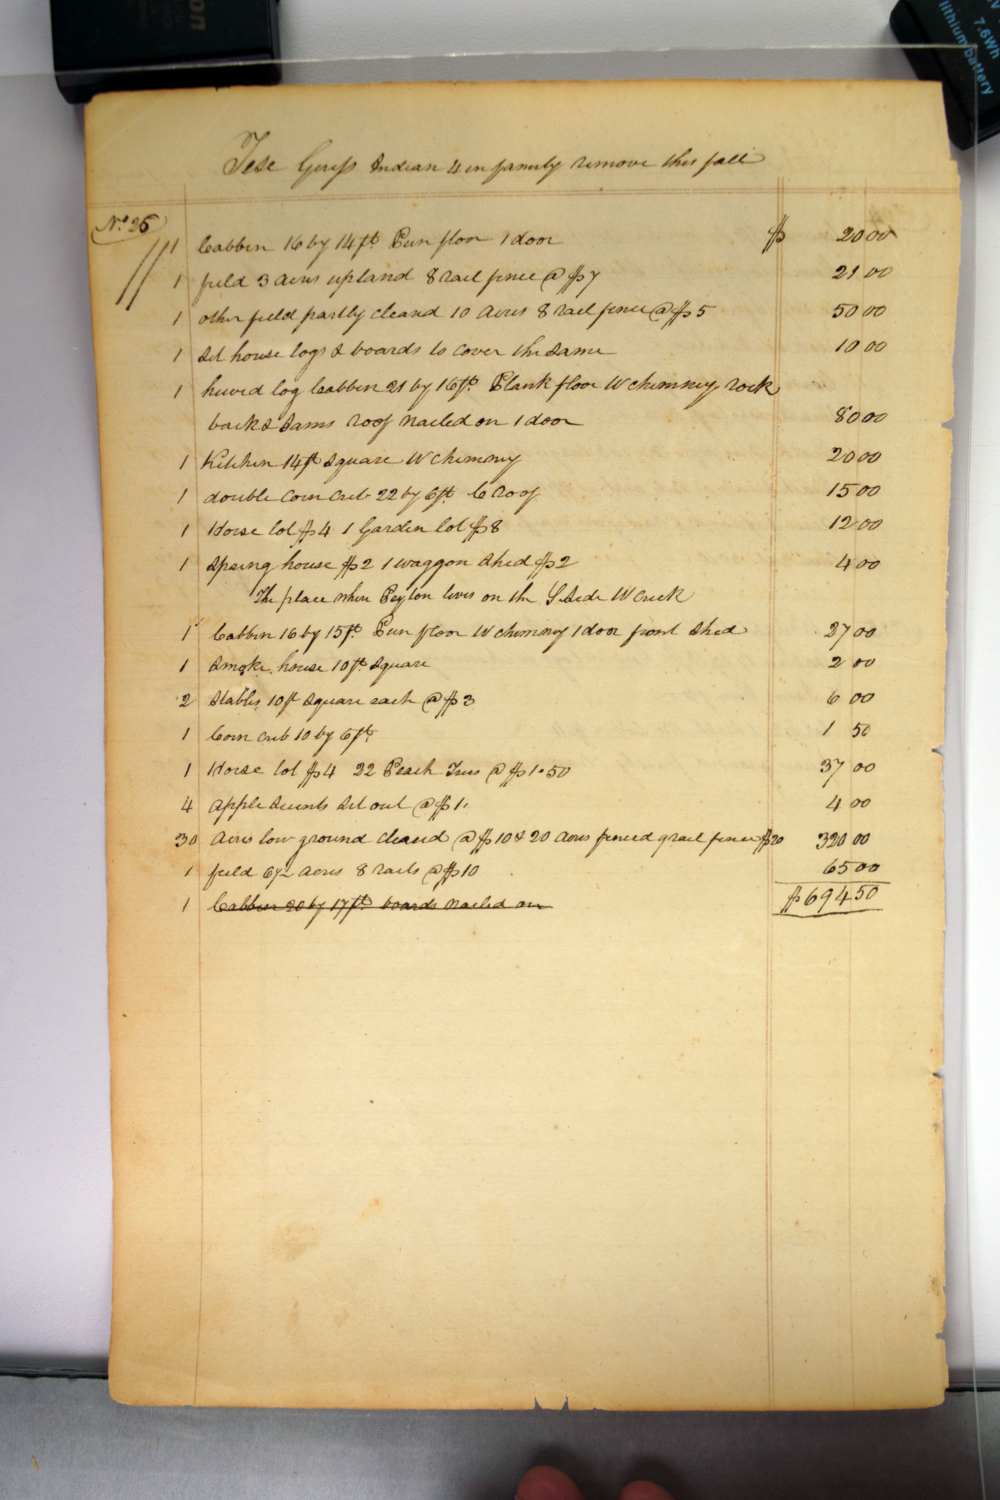 Tese Guess Indian 4 in family remove this fall
No. 26
1 Cabben 16 by 14 ft. Pun floor 1 door $ 20 00
1 field 3 acres upland 8 rail fence @ $7 21 00
1 other field partly cleard 10 acres 8 rail fence @ $5 50 00
1 Set house logs & boards to cover the Same 10 00
1 hewed log Cabben 21 by 16 ft. Plank floor W chimney rock
back & Jams roof nailed on 1 door 80 00
1 Kitchen 14 ft Square W chimney 20 00
1 double Corn Crib 22 by 6 ft. C roof 15 00
1 Horse lot $4 1 Garden lot $8 12 00
1 Spring house $2 1 waggon Shed $2 4 00
The place where Peyton lives on the S Side W Creek
1 Cabben 16 by 15 ft. Pun floor W chimney 1 door front Shed 27 00
1 Smoke house 10 ft. Square 2 00
2 Stables 10 ft Square each @ $3 6 00
1 Corn crib 10 by 6 ft. 1 50
1 Horse lot $4 22 Peach Trees @ $1.50 37 00
4 apple Set out @ $1. 4 00
30 acres low ground cleared @ $10 & 20 acres fenced 9 rail fence $20 320 00
1 field 6 1/2 acres 8 rails @ $10 65 00
1 Cabben 20 by 17 ft. boards nailed on $694 50
7.6Wh
lithium battery